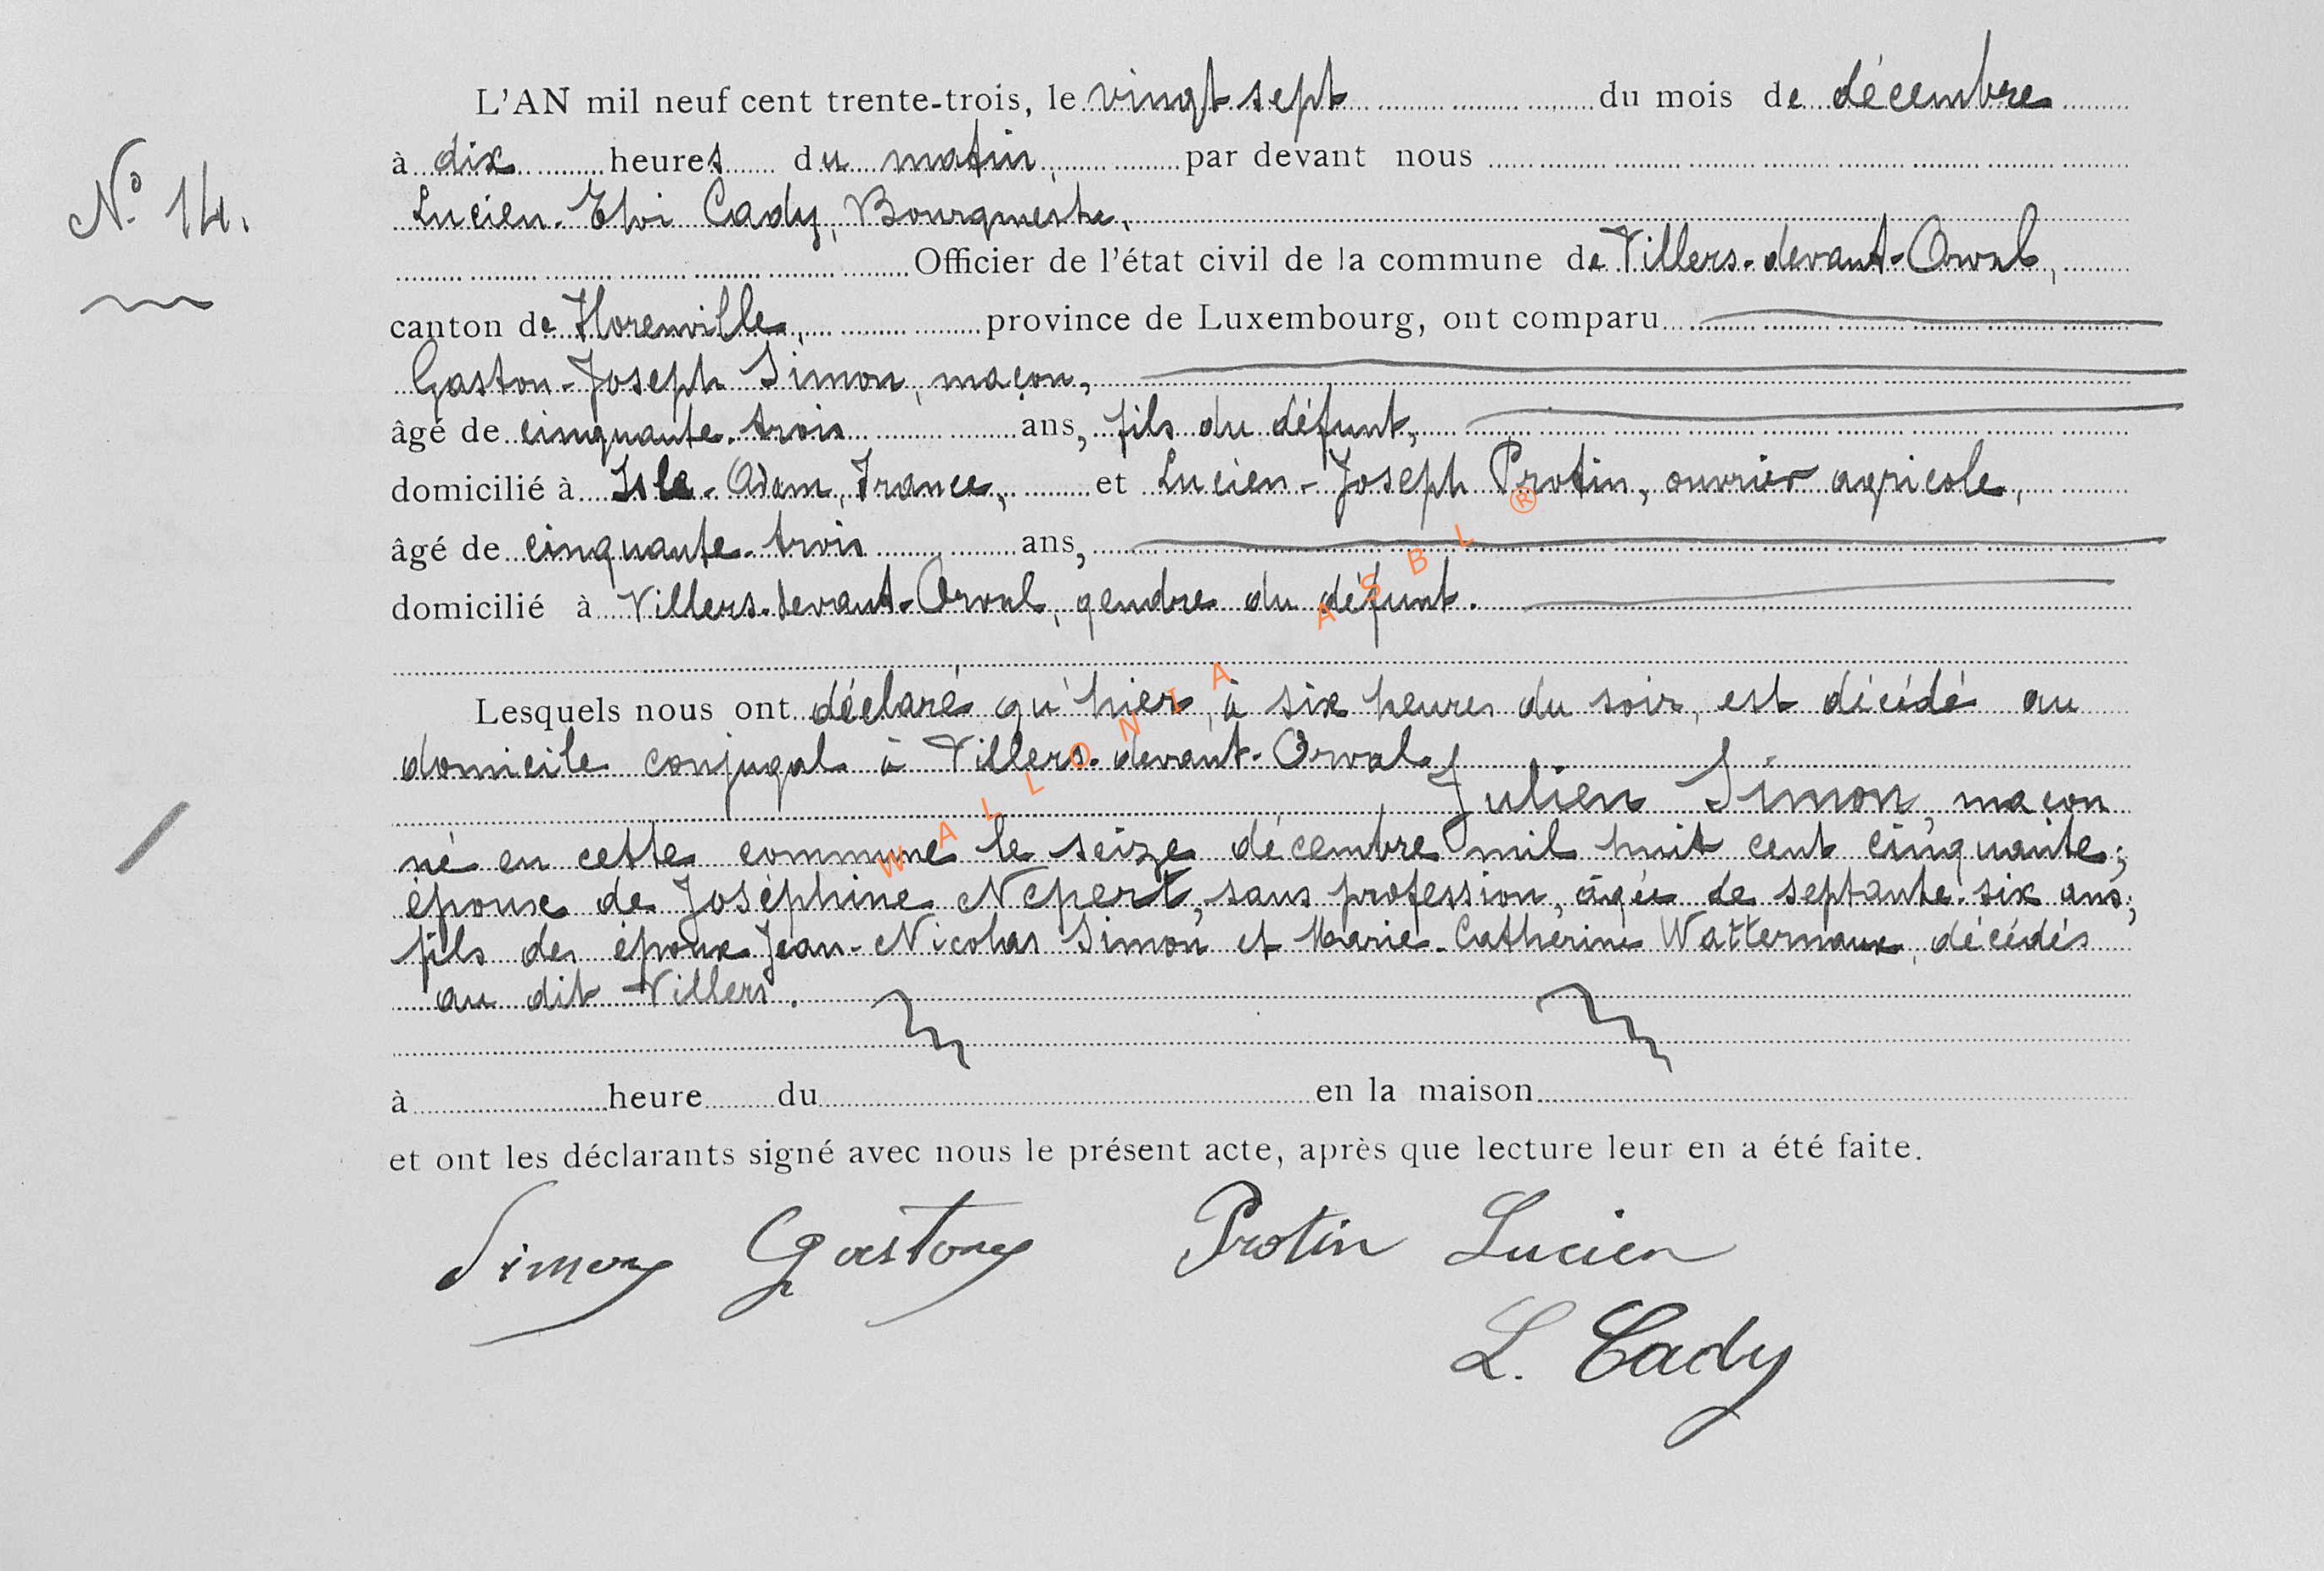 L'AN mil neuf cent trente-trois, le vingt-sept du mois de décembre
à dix heures du matin, par devant nous
N° 14.
Lucien-Eloi Cady, Bourgmestre,
Officier de l'état civil de la commune de Villers-devant-Orval,
canton de Florenville, province de Luxembourg, ont comparu
Gaston-Joseph Simon, maçon,
âgé de cinquante-trois ans, fils du défunt,
domicilié à Isle-Adam, France, et Lucien-Joseph Protin, ouvrier agricole,
âgé de cinquante-trois ans,
domicilié à Villers-devant-Orval, gendre du défunt.
Lesquels nous ont déclaré qu'hier, à six heures du soir, est décédé au
domicile conjugal à Villers-devant-Orval,
Julien Simon, maçon
né en cette commune le seize décembre mil huit cent cinquante;
époux de Joséphine Nepert, sans profession, âgée de septante-six ans;
fils des époux Jean-Nicolas Simon et Marie-Catherine Watternaux, décédés
au dit Villers.
à heure du en la maison
et ont les déclarants signé avec nous le présent acte, après que lecture leur en a été faite.
Simon Gaston Protin Lucien
L. Cady
WALLONIA ASBL ®